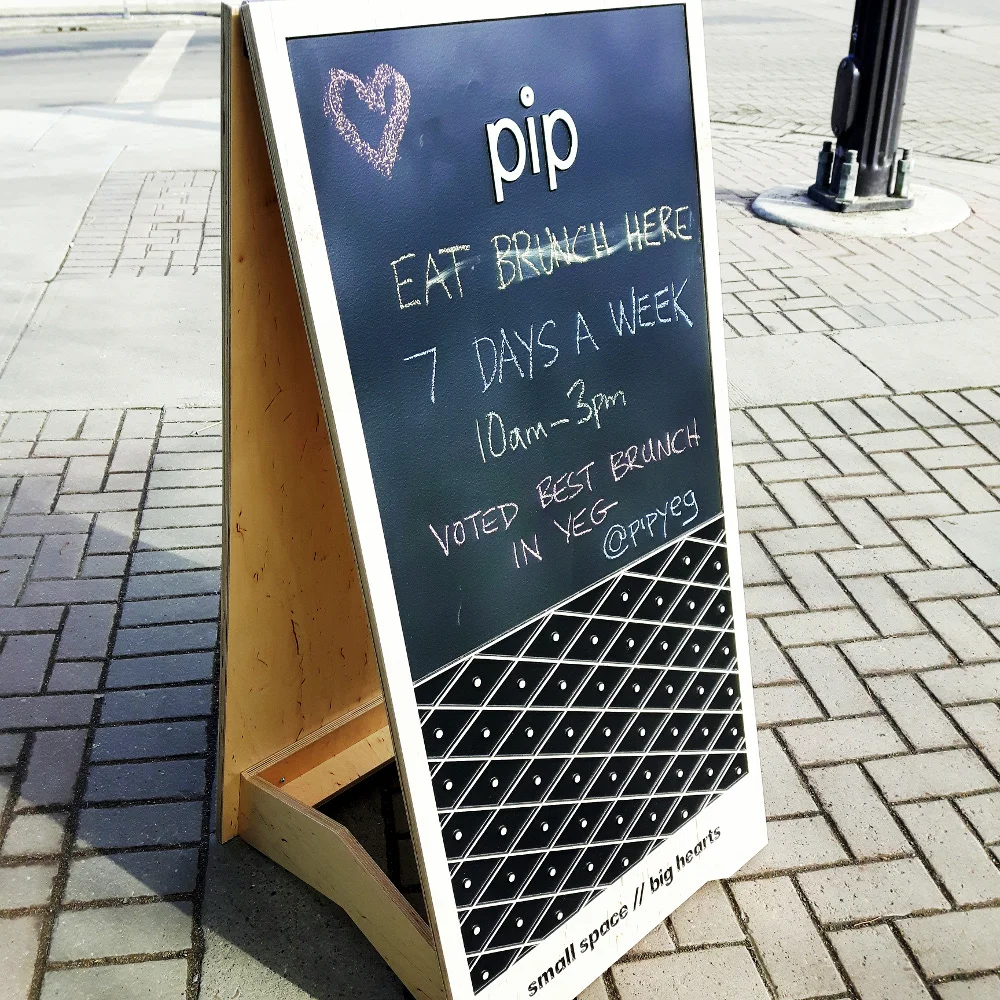 pip
EAT BRUNCH HERE
7 DAYS A WEEK
10am-3pm
VOTED BEST BRUNCH
IN YEG
@pipyeg
small space // big hearts